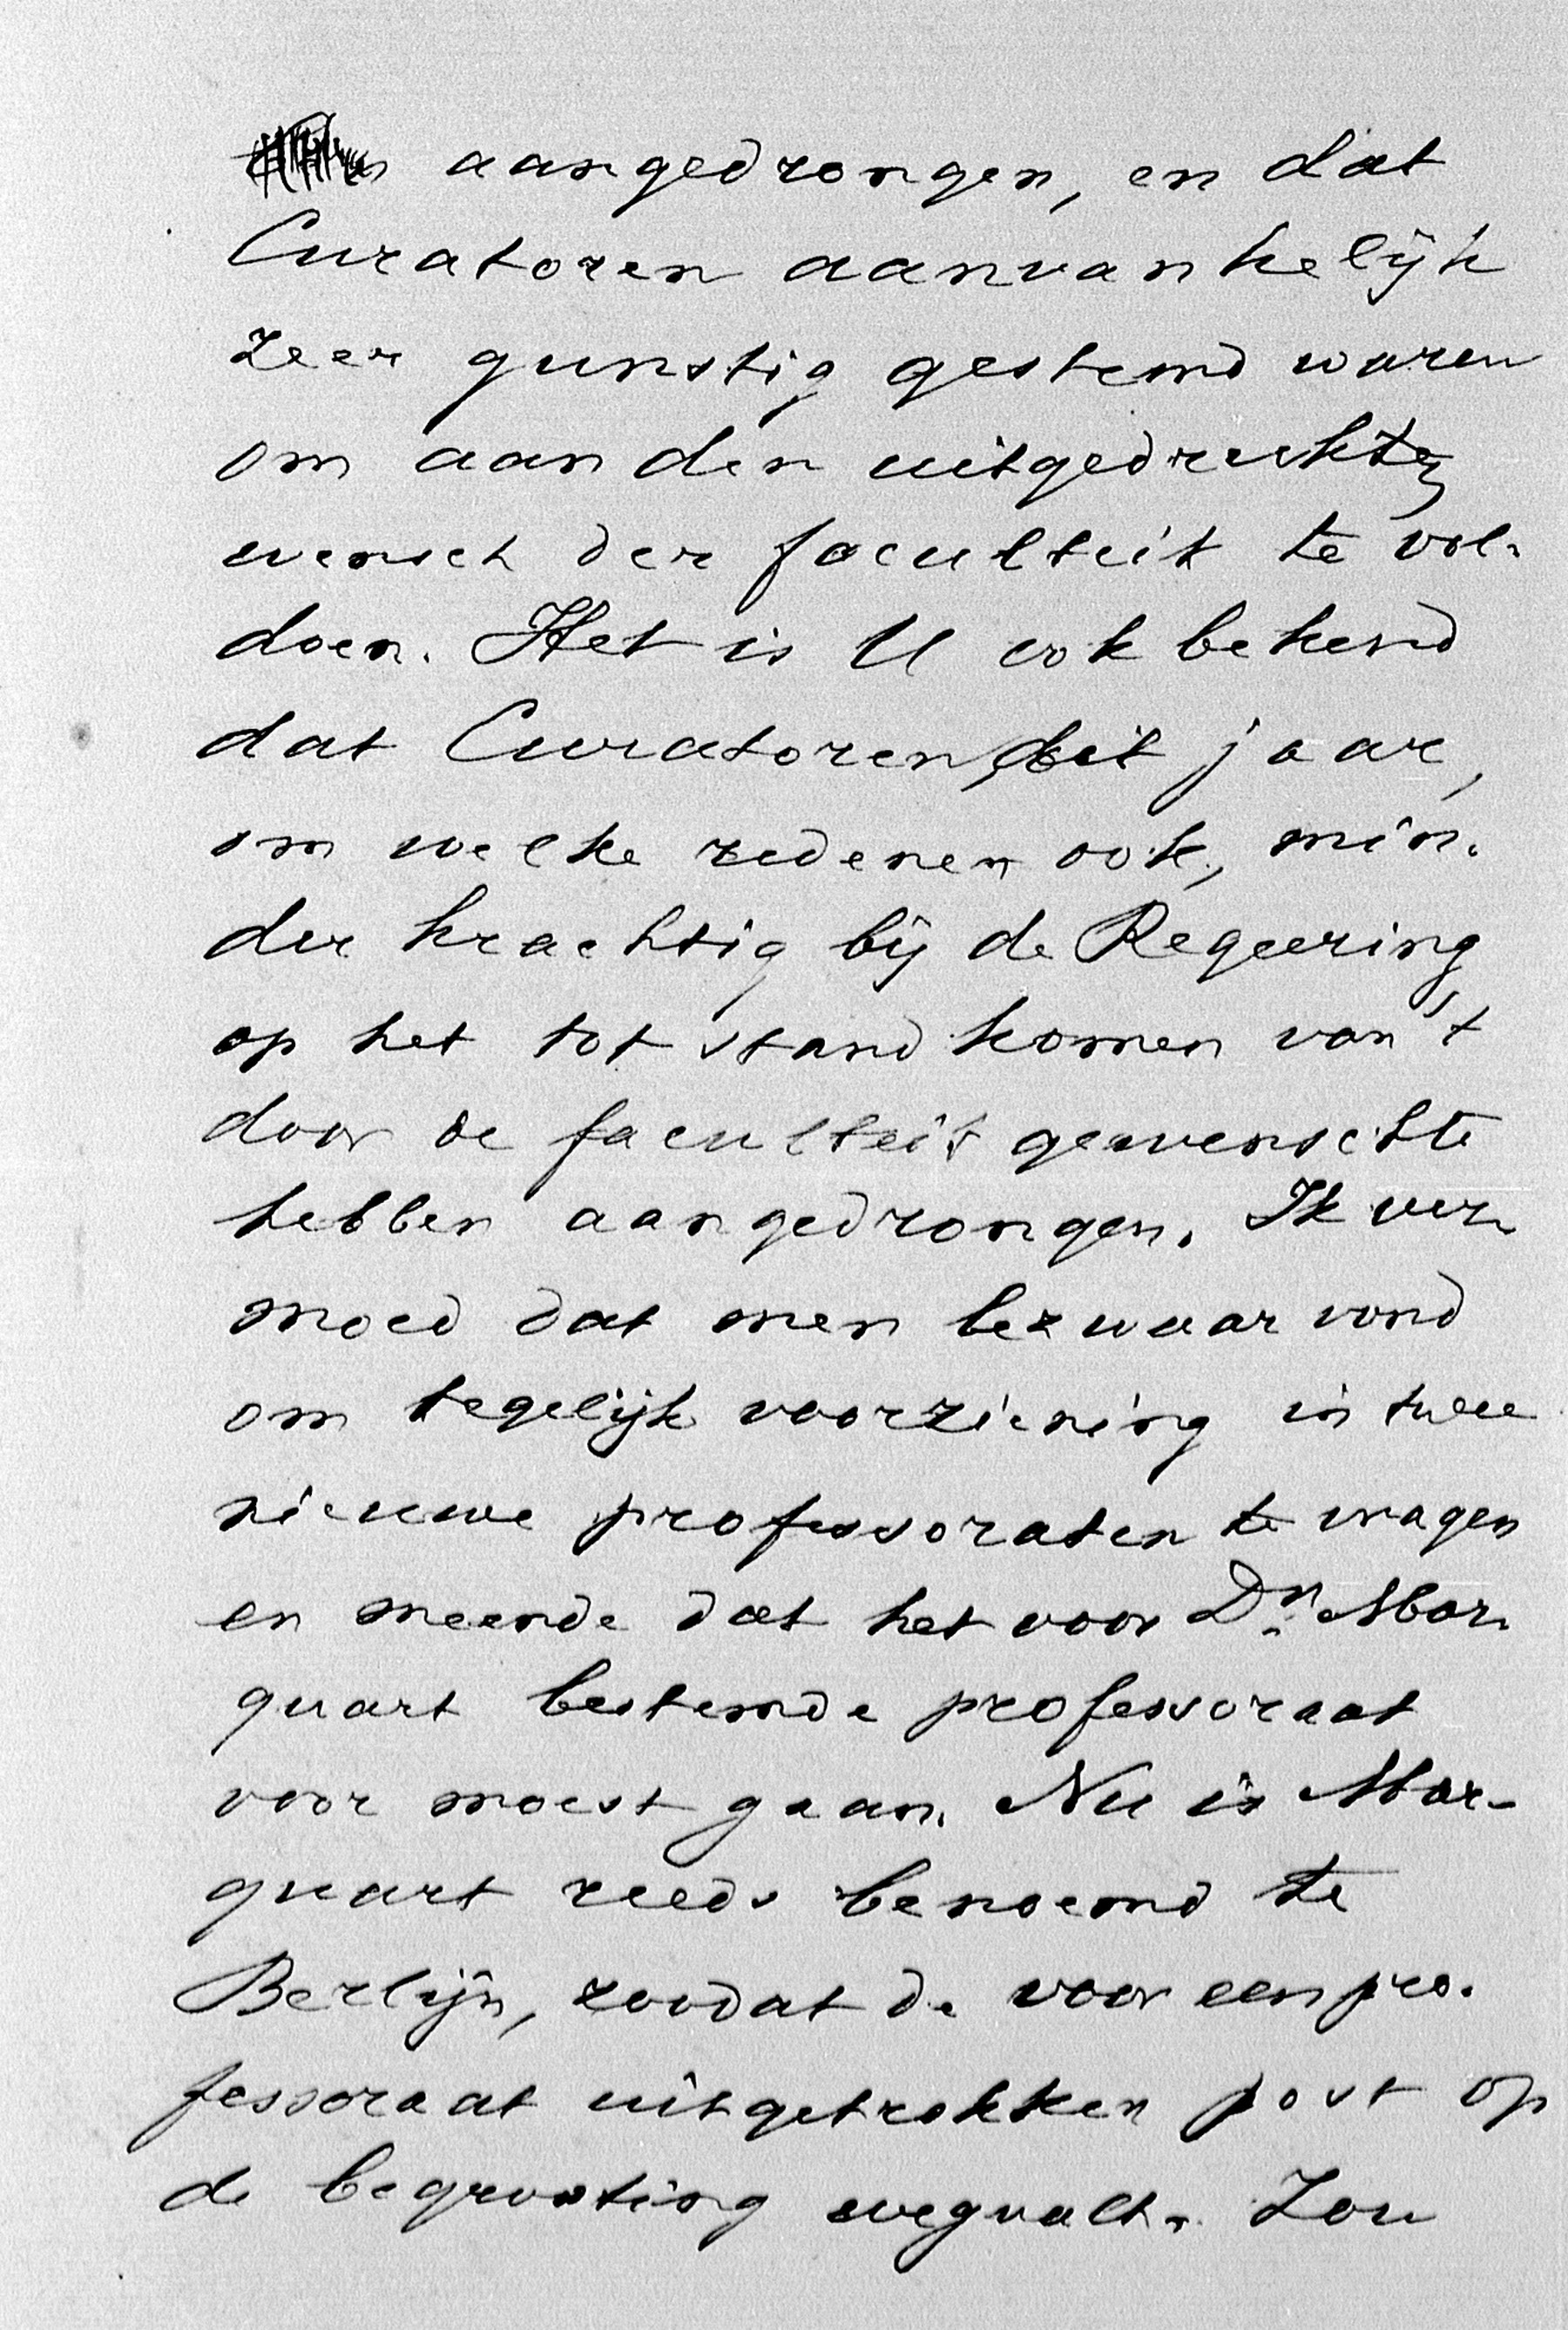 aangedrongen, en dat
Curatoren aanvankelijk
zeer gunstig gestemd waren
om aan den uitgedrukten
wensch der faculteit te vol-
doen. Het is U ook bekend
dat Curatoren, dit jaar,
om welke redenen ook, min-
der krachtig bij de Regeering
op het tot stand komen van 't
door de faculteit gewenschte
hebben aangedrongen. Ik ver-
moed dat men bezwaar vond
om tegelijk voorziening in twee
nieuwe professoraten te vragen
en meende dat het voor Dr. Mar-
quart bestemde professoraat
voor moest gaan. Nu is Mar-
quart reeds benoemd te
Berlijn, zoodat de voor een pro-
fessoraat uitgetrokken post op
de begrooting wegvalt. Zou